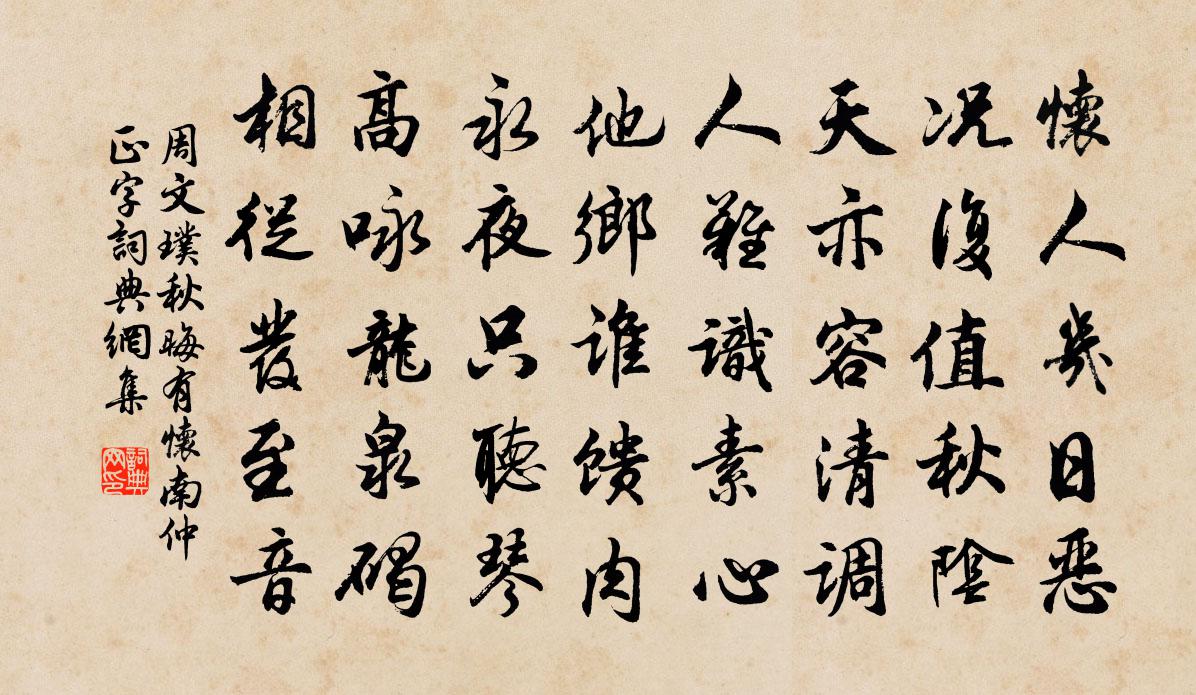 懷人幾日惡
况復值秋陰
天亦容清調
人難識素心
他鄉誰馈肉
永夜只聽琴
高咏龍泉碣
相從發至音
周文璞秋晦有懷南仲
正字詞典網集
詞典网印